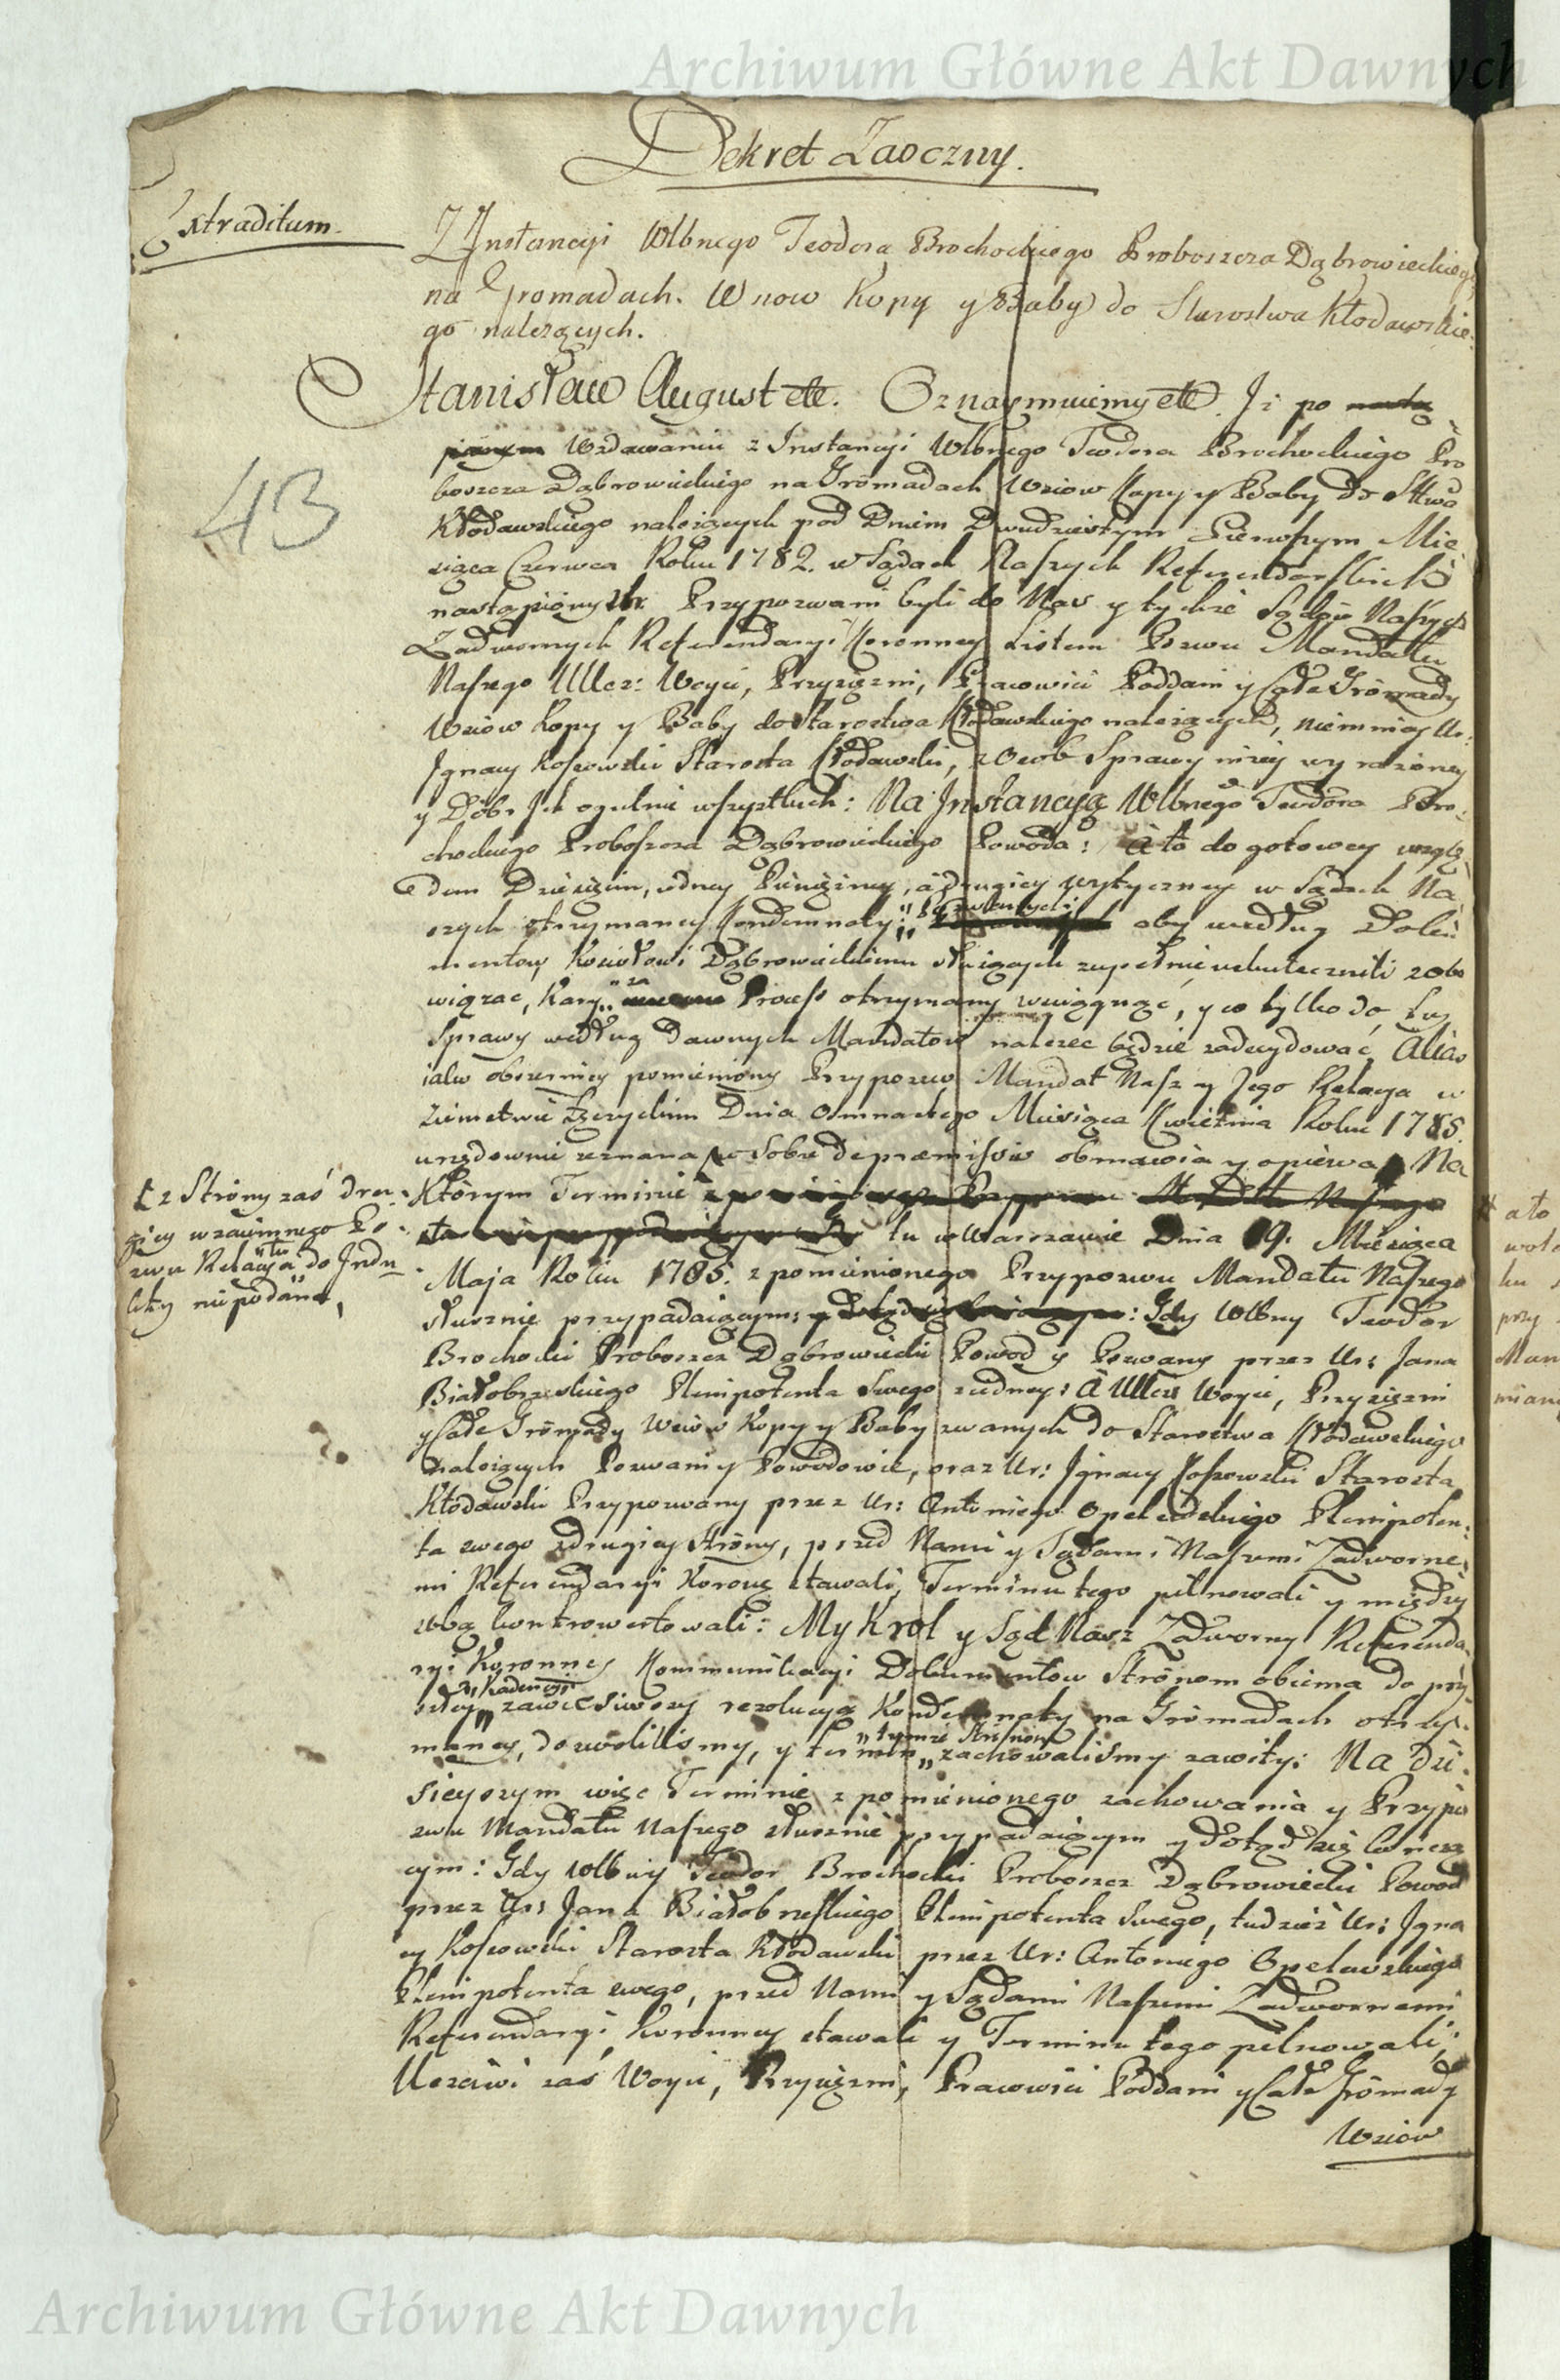 Archiwum Główne Akt Dawnych
Dekret Zaoczny.
Extraditum.
Z Instancyi Wlbnego Teodora Brochockiego Proboszcza Dąbrowieckiego
na Gromadach. Wsiow Kopy y Baby do Starostwa Kłodawskie-
go należących.
Stanisław August etc. Oznaymuiemy etc. Iż po
Wzdawaniu z Instancyi Wlbnego Teodora Brochockiego Pro
boszcza Dąbrowieckiego na Gromadach Wsiow Kopy y Baby do Sttwa
43
Kłodawskiego należących pod Dniem Dwudziestym Pierwszym Mie
siąca Czerwca Roku 1782. w Sądach Naszych Referendarskich
nastąpionym Przypozwani byli do Nas y tychże Sądów Naszych
Zadwornych Referendaryi Koronney Listem Pozwu Mandatu
Naszego UUcz: Woyci, Przysiężni, Pracowici Poddani y Całe Gromady
Wsiow Kopy y Baby do Starostwa Kłodawskiego należących, niemniey Ur:
Ignacy Kossowski Starosta Kłodawski, z Osob Sprawy niżey wyrażoney
y Dobr Ich ogulnie wszystkich: Na Instancyą Wlbnego Teodora Bro-
chockiego Proboszcza Dąbrowieckiego Powoda: A to do gotowey wzglę
dem Dziesięcin, iedney Pieniężney, a drugiey wytyczney w Sądach Na
szych otrzymaney Kondemnaty: aby według Doku
mentow Kościołowi Dąbrowieckiemu służących zupełnie uskutecznili zobo
wiązac, Kary „za Process otrzymany wciągnąć, y co tylko do tey
Sprawy według dawnych Mandatow należec będzie zadecydować, Alias
iako obszerniey pomieniony Przypozew Mandat Nasz y Jego Relacya w
Ziemstwie Łęczyckim Dnia Osmnastego Miesiąca Kwietnia Roku 1785.
urzędownie zeznana w Sobie de præmissis obmawia y opiewa Na
z Strony zaś dru-
giey wzaiemnego Po-
zwu Relacya „tu do Indu
kty niepodana,
Którym Terminie
tu w Warszawie Dnia 19. Miesiąca
Maja Roku 1785. z pomienionego Przypozwu Mandatu Naszego
słusznie przypadaiącym: Gdy Wlbny Teodor
Brochocki Proboszcz Dąbrowiecki Powod y Pozwany przez Ur: Jana
Białobrzeskiego Plenipotenta Swego z iedney: A UUczi Woyci, Przysiężni
y Całe Gromady Wsiow Kopy y Baby zwanych do Starostwa Kłodawskiego
należących Pozwani y Powodowie, oraz Ur: Ignacy Kossowski Starosta
Kłodawski Przypozwany przez Ur: Antoniego Plenipoten-
ta swego z drugiey strony, przed Nami y Sądami Naszemi Zadworne-
mi Referendaryi Koronney stawali, Terminu tego pilnowali y między
sobą kontrowertowali: My Krol y Sąd Nasz Zadworny Referenda
ryi Koronney Kommunikacyi Dokumentow Stronom obiema do przy
szłey „Kadencyi” zawiesiwszy rezolucyą Kondemnaty na Gromadach otrzy-
maney, dozwolilismy, y termin „tymże Stronom” zachowaliśmy zawity: Na dzi-
sieyszym więc Terminie z pomienionego zachowania y Przypo
zwu Mandatu Naszego słusznie przypadaiącym y dotąd się
cym: Gdy Wlbny Teodor Brochocki Proboszcz Dąbrowiecki Powod
przez Ur: Jana Białobrzeskiego Plenipotenta Swego, tudzież Ur: Igna
cy Kossowski Starosta Kłodawski przez Ur: Antoniego
Plenipotenta swego, przed Nami y Sądami Naszemi Zadwornemi
Referendaryi Koronney stawali y Terminu tego pilnowali;
Uczciwi zaś Woyci, Przysiężni, Pracowici Poddani y Całe Gromady
Wsiow
Archiwum Główne Akt Dawnych